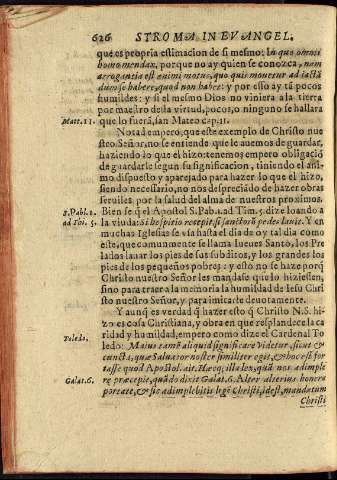 626 STROMA IN EVANGEL.
que es propria estimacion de si mesmo: In quo omnis
homo mendax, porque no ay quien se conozca, nam
arrogantia est animi motus, quo quis mouetur ad iactã
dum se habere, quod non habet: y por esso ay tã pocos
humildes: y si el mesmo Dios no viniera a la tierra
por maestro desta virtud, pocos, o ninguno se hallara
Matt. 11. que lo fuera, san Mateo cap. 11.
Notad empero, que este exemplo de Christo nue
stro Señor, no se entiende que le auemos de guardar,
haziendo lo que el hizo: tenemos empero obligaciõ
de guardarle segun su significacion, tiniendo el ani-
mo dispuesto y aparejado para hazer lo que el hizo,
siendo necessario, no nos despreciãdo de hazer obras
seruiles, por la salud del alma de nuestros proximos.
S. Pabl. 1. Bien se q̃ el Apostol S. Pab. 1. ad Tim. 5. dize loando a
ad Thi. 5. la viuda: Si hospitio recepit, si sanctorũ pedes lauit. Y en
muchas Iglesias se vsa hasta el dia de oy tal dia como
este, que comunmente se llama Iueues Santo, los Pre
lados lauar los pies de sus subditos, y los grandes los
pies de los pequeños pobres: y esto no se haze porq̃
Christo nuestro Señor les mande que lo hiziessen,
sino para traer a la memoria la humildad de Iesu Chri
sto nuestro Señor, y para imitarle deuotamente.
Y aunq̃ es verdad q̃ hazer esto q̃ Christo N.S. hi-
zo es cosa Christiana, y obra en que resplandece la ca
ridad y humildad, empero como dize el Cardenal To
Toledo. ledo: Maius tamẽ aliquid significare videtur, sicut &
cuncta, quæ Saluator noster similiter egit, & hoc est for
tasse quod Apostol. ait. Hæcq; illa lex, quã nos adimple
re præcepit, quãdo dixit Galat. 6. Alter alterius honera
Galat. 6. portate, & sic adimplebitis legẽ Christi, idest, mandatum
Christi